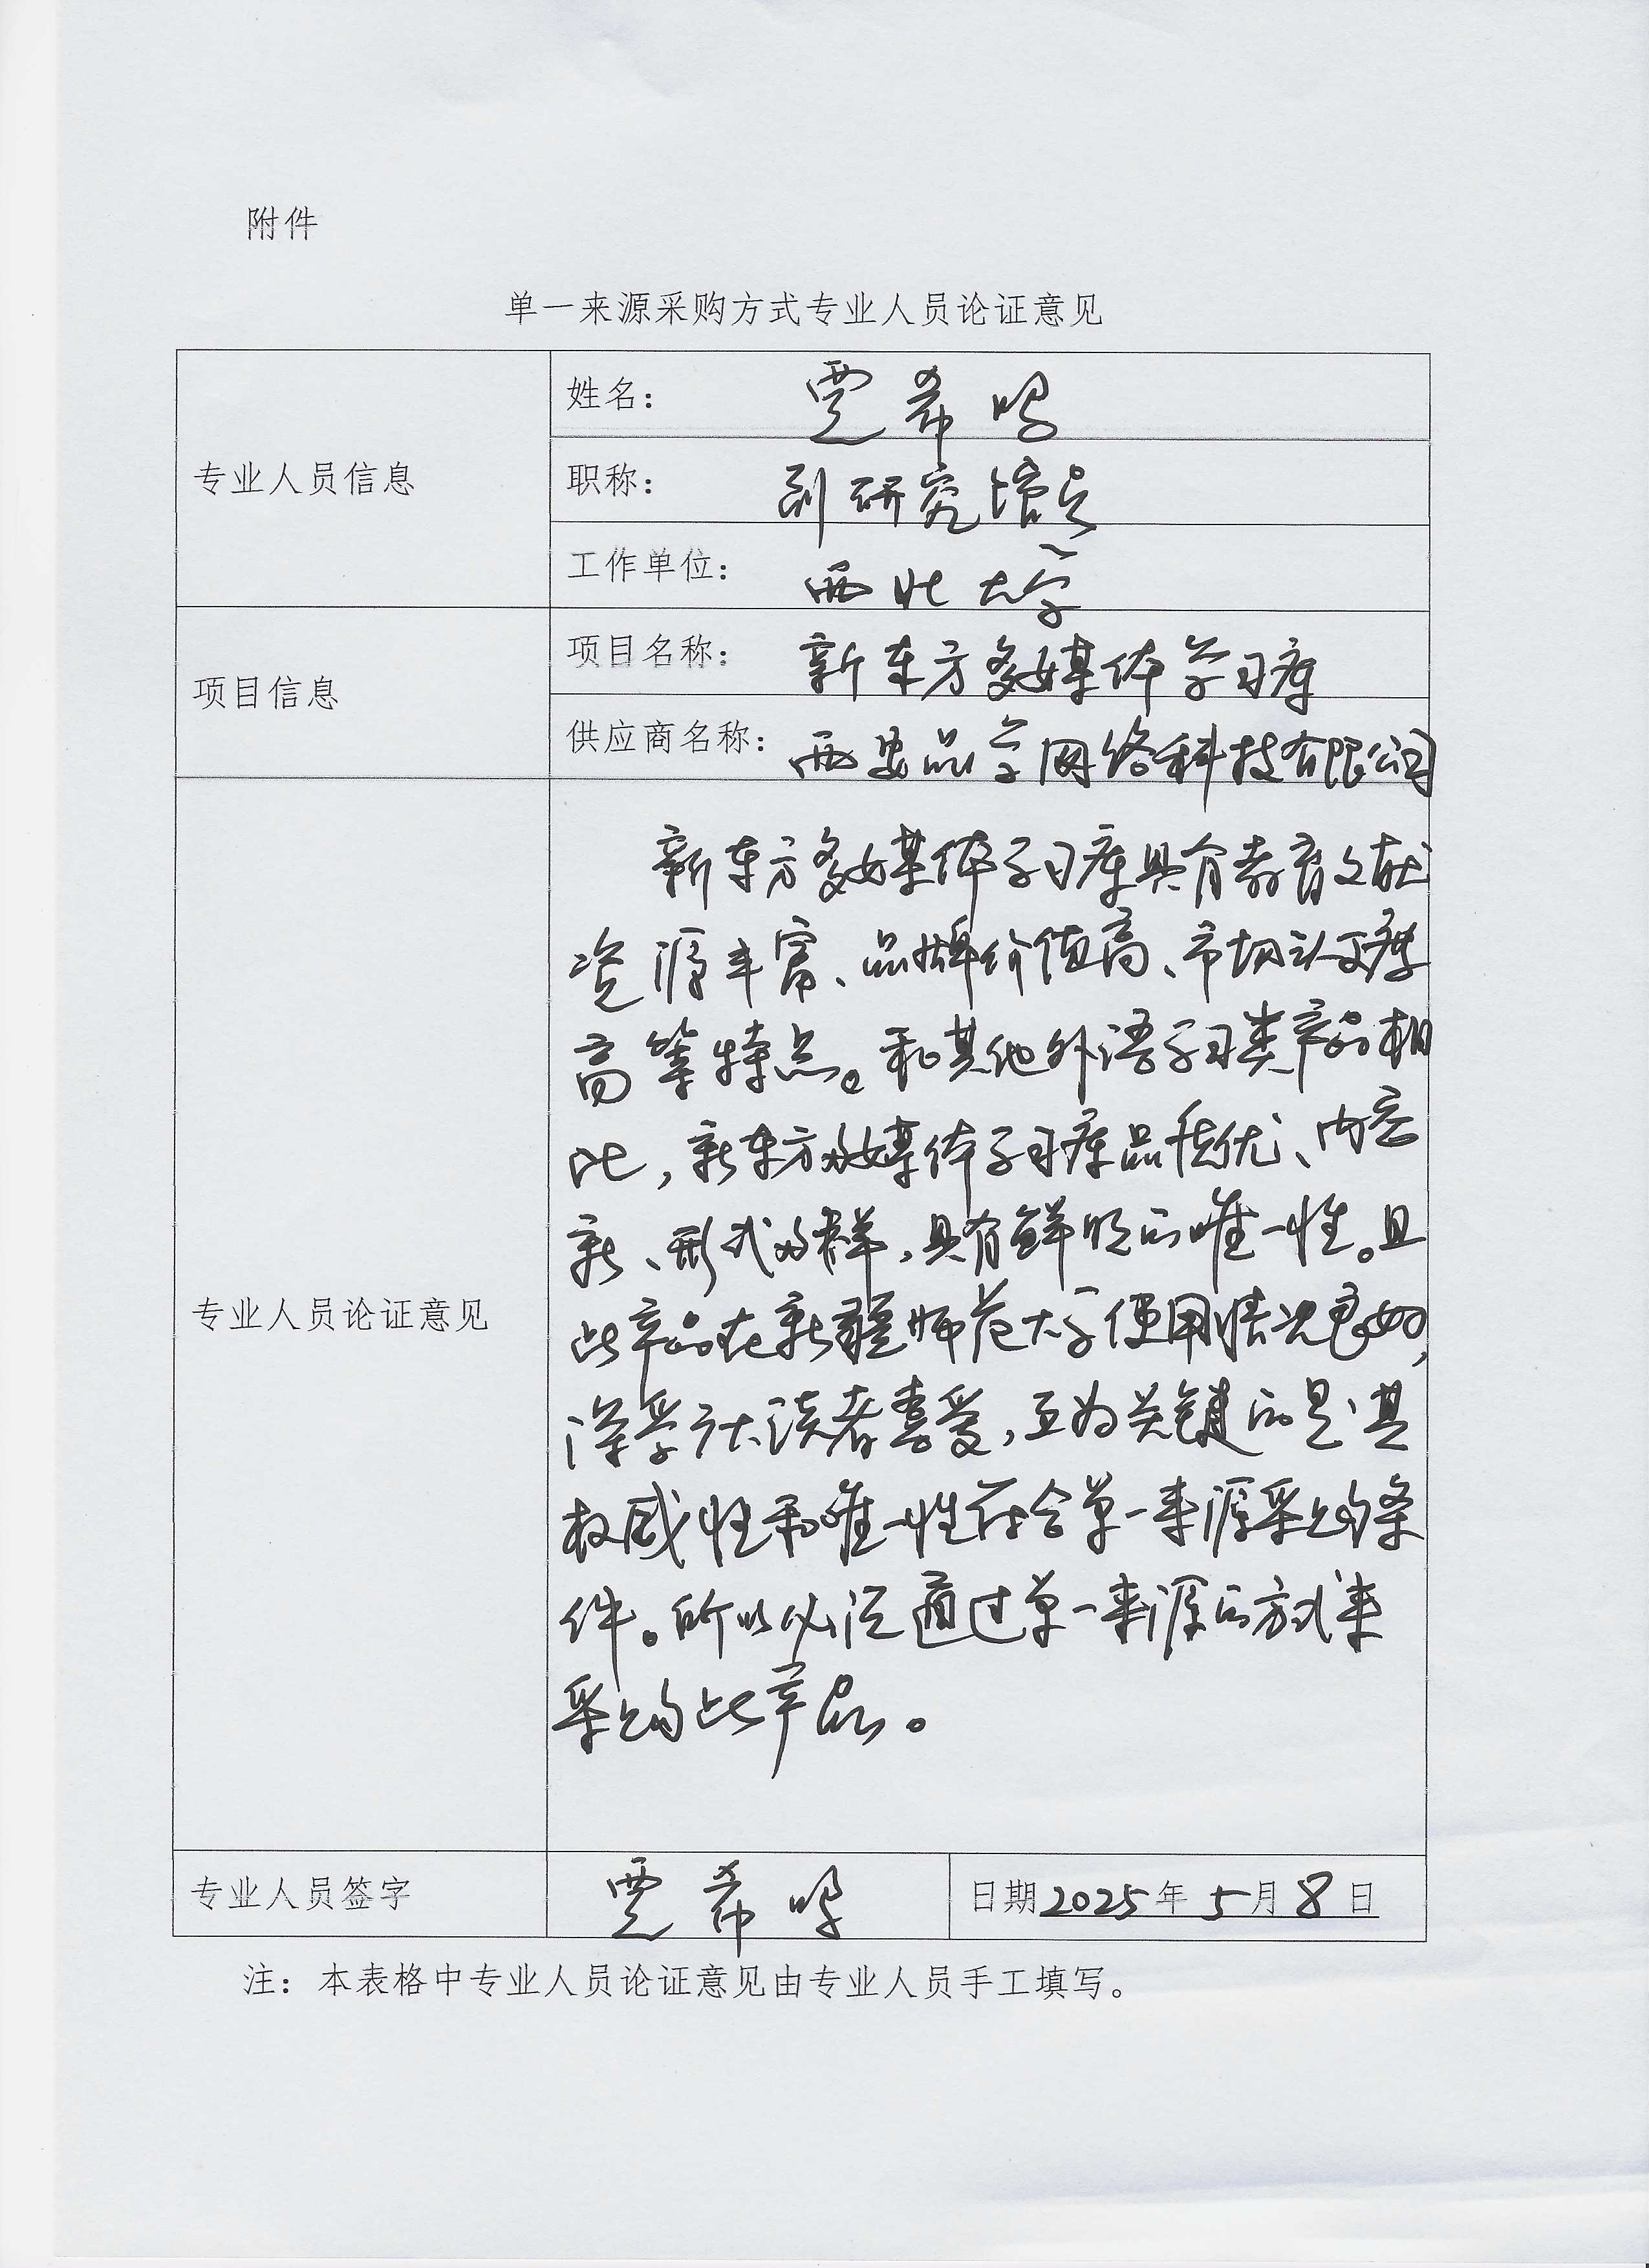 附件
单一来源采购方式专业人员论证意见
专业人员信息
姓名: 贾希鸣
职称: 副研究馆员
工作单位: 西北大学
项目信息
项目名称: 新东方多媒体学习库
供应商名称: 西安品学网络科技有限公司
专业人员论证意见
新东方多媒体学习库具有教育文献
资源丰富、品牌价值高、市场认可度
高等特点。和其他外语学习类产品相
比,新东方多媒体学习库品质优、内容
新、形式多样,具有鲜明的唯一性。且
此产品在新疆师范大学使用情况良好,
深受广大读者喜爱,更为关键的是:其
权威性和唯一性符合单一来源采购条
件。所以必须通过单一来源的方式来
采购此产品。
专业人员签字
贾希鸣
日期2025年5月8日
注:本表格中专业人员论证意见由专业人员手工填写。